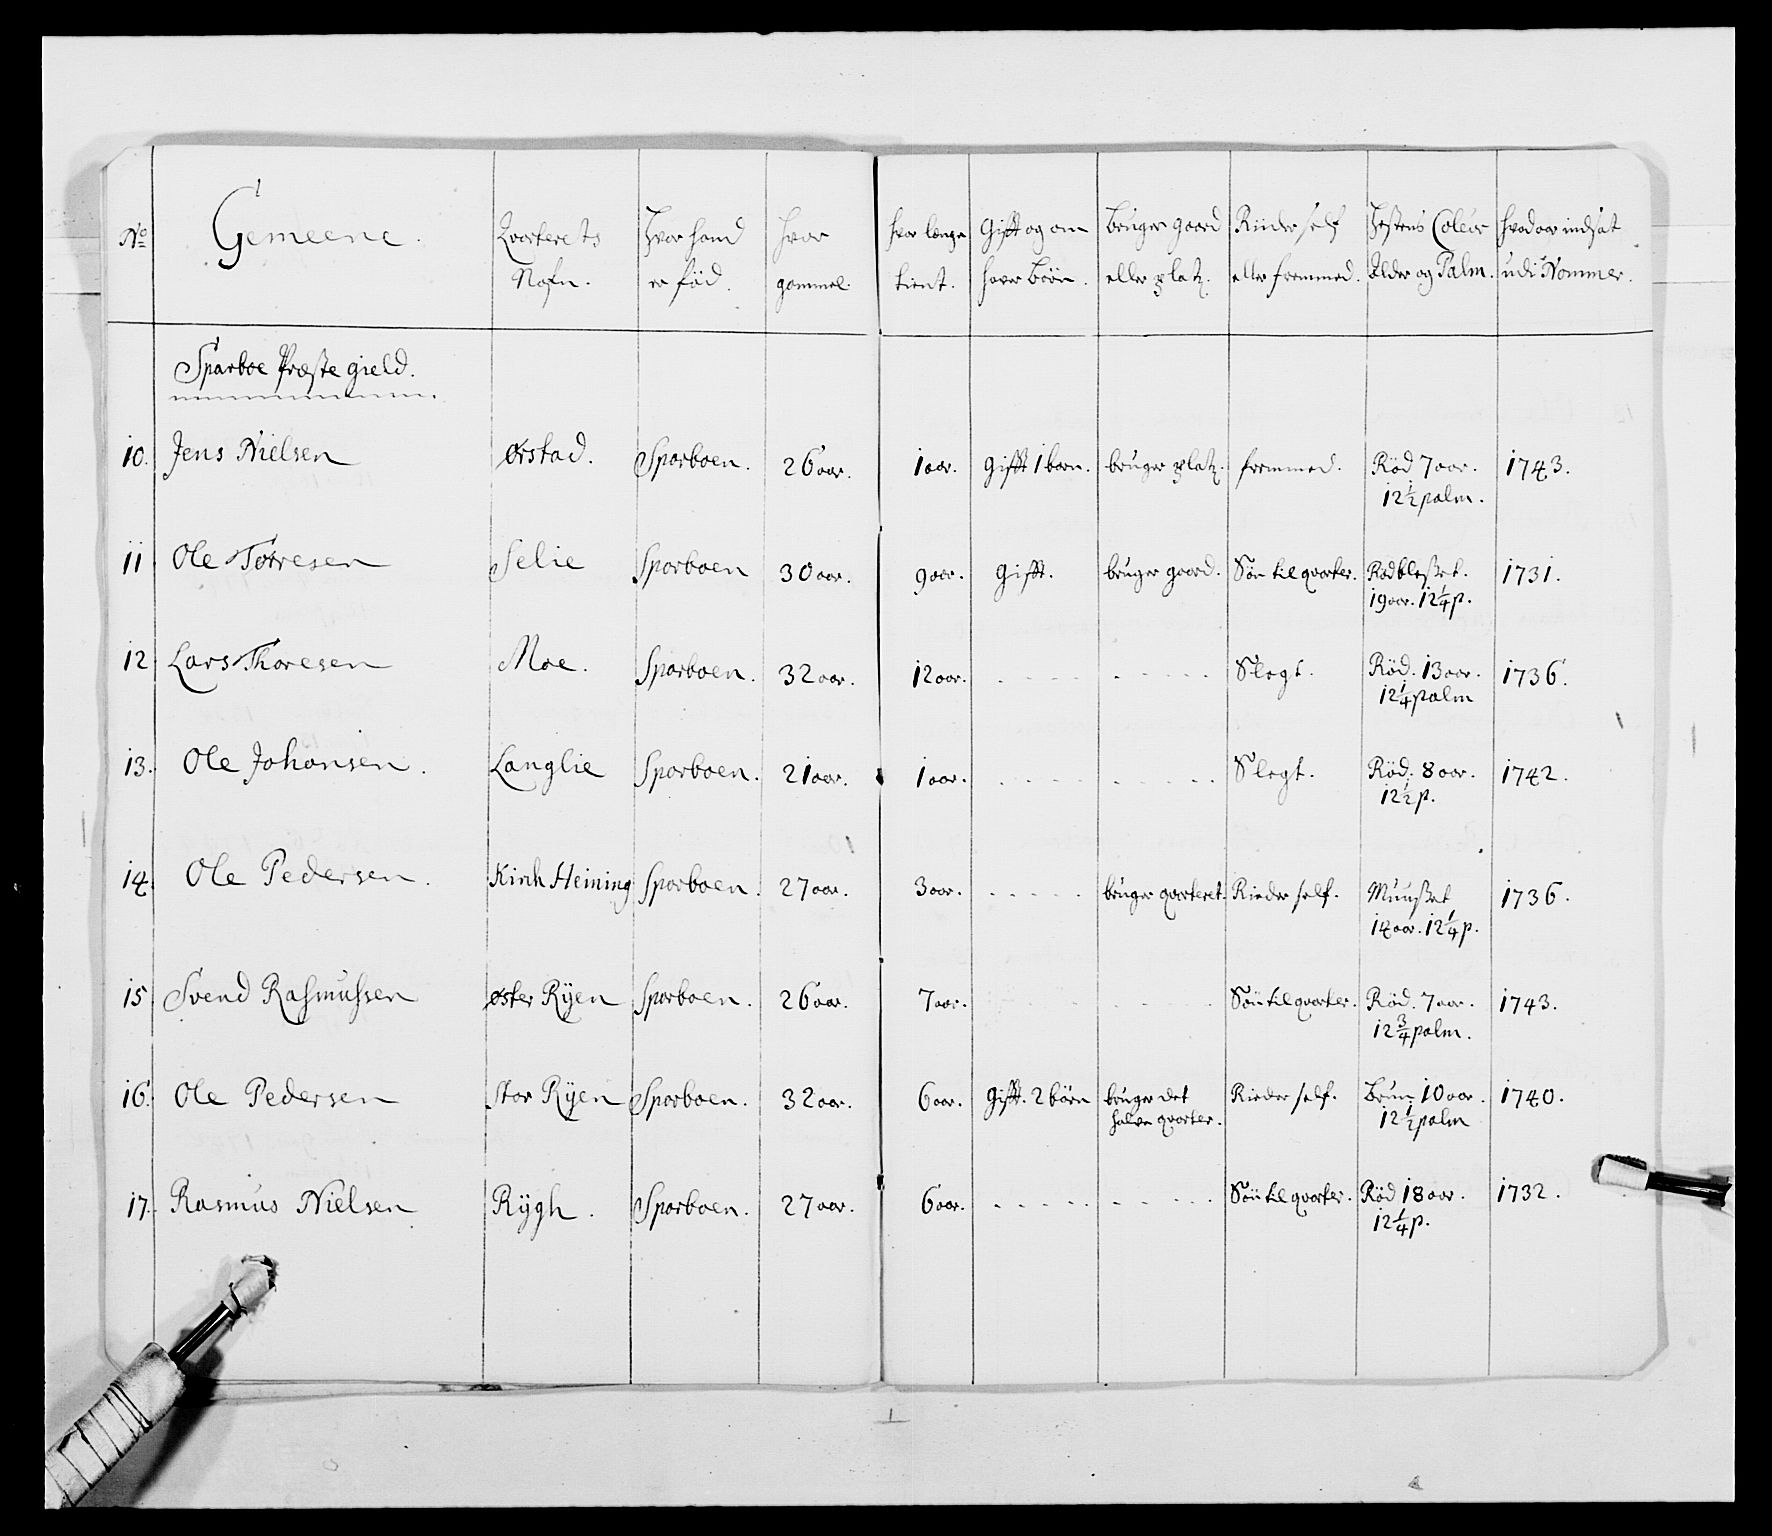 No Gemeene. Qvarterets Nafn. Hvor hand er fød. Hvor gammel. hvor længe tient. Gifft og om haver Børn. Bruger gaard eller platz. Riider self eller fremmed. Hestens Coleur Alder og Palm. hvad aar indsat udi Nommer.
Sparboe Præste gield.
10. Jens Nielsen Ørstad. Sparboen. 26 aar. 1 aar. Gifft 1 barn. bruger platz. fremmed. Rød 7 aar. 1743.
12½ palm.
11 Ole Torresen Selie Sparboen 30 aar. 9 aar. Gifft. bruger gaard. Søn til qvarter. Rødblesset. 1731.
19 aar. 12¼ p.
12 Lars Thoresen Moe. Sparboen. 32 aar. 12 aar. - - - - - - - - - Slegt. Rød. 13 aar. 1736.
12¼ palm
13. Ole Johansen. Langlie Sparboen. 21 aar. 1 aar. - - - - - - - - - Slegt. Rød. 8 aar. 1742.
12½ p.
14. Ole Pedersen. Kirch Heining Sparboen. 27 aar. 3 aar. - - - - - bruger qvarteret. Rieder self. Muusset 1736.
14 aar. 12¼ p.
15 Svend Rasmussen Øster Rÿen Sparboen. 26 aar. 7 aar. - - - - - - Søn til qvarter. Rød. 7 aar. 1743.
12¾ palm.
16. Ole Pedersen Stor Rÿen Sparboen. 32 aar. 6 aar. Gifft. 2 börn bruger det Rieder self. Brun 10 aar. 1740.
halve qvarter. 12½ palm
17. Rasmus Nielsen Rÿgh. Sparboen. 27 aar. 6 aar. - - - - - - - - - Søn til qvarter. Rød 18 aar. 1732.
12¼ p.